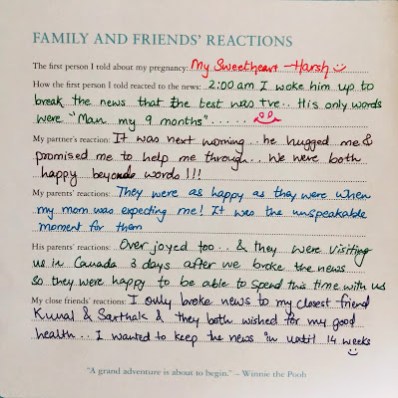 FAMILY AND FRIENDS' REACTIONS
The first person I told about my pregnancy: My Sweetheart - Harsh
How the first person I told reacted to the news: 2:00 am I woke him up to
break the news that the test was +ve.. His only words
were "Man my 9 months" .....
My partner's reaction: It was next morning.. he hugged me &
promised me to help me through... We were both
happy beyond words !!!
My parents' reactions: They were as happy as they were when
my mom was expecting me! It was the unspeakable
moment for them
His parents' reactions: Over joyed too.. & they were visiting
us in Canada 3 days after we broke the news
So they were happy to be able to spend this time with us
My close friends' reactions: I only broke news to my closest friend
Kunal & Sarthak & they both wished for my good
health.. I wanted to keep the news "in until 14 weeks
"A grand adventure is about to begin." – Winnie the Pooh